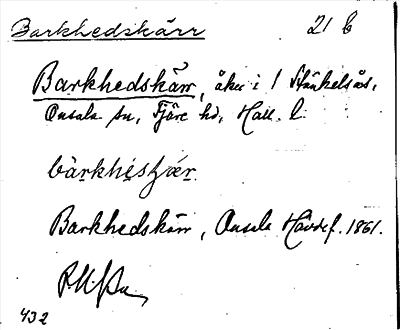 Barkhedskärr 21 b
Barkhedskärr, åker i 1 Stänkelsås,
Onsala sn, Fjäre hd, Hall. l.
bàrkhesҫæ̀r
Barkhedskärr, Onsala Hävdef. 1861.
432